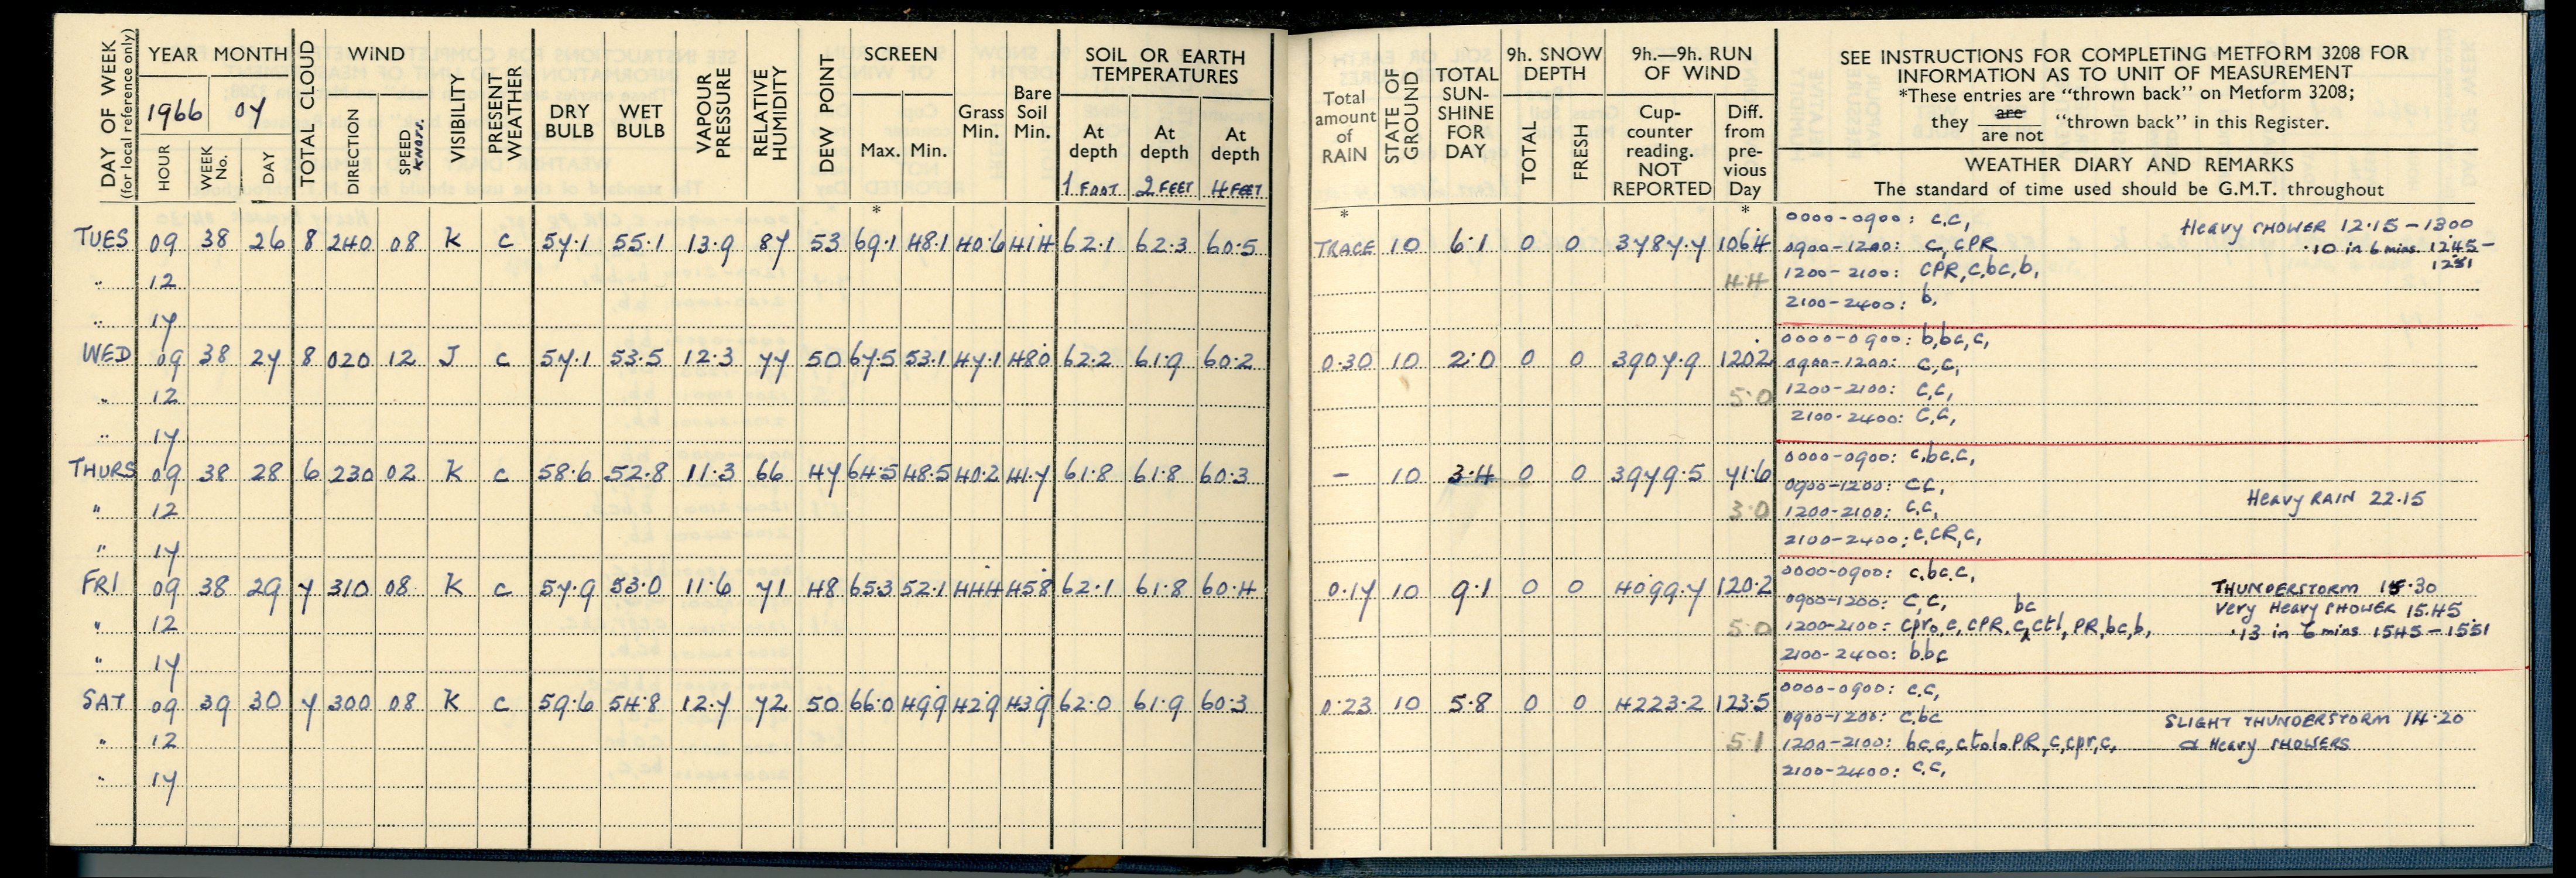 DAY OF WEEK (for local reference only) YEAR MONTH TOTAL CLOUD WIND VISIBILITY PRESENT WEATHER DRY BULB WET BULB VAPOUR PRESSURE RELATIVE HUMIDITY DEW POINT SCREEN Grass Min. Bare Soil Min. SOIL OR EARTH TEMPERATURES
1966 07
HOUR WEEK No. DAY DIRECTION SPEED KNOTS. Max. Min. At depth At depth At depth
1 FOOT 2 FEET 4 FEET
*
TUES 09 38 26 8 240 08 K C 57.1 55.1 13.9 87 53 69.1 48.1 40.6 41.4 62.1 62.3 60.5
" 12
" 17
WED 09 38 27 8 020 12 J C 57.1 53.5 12.3 77 50 67.5 53.1 47.1 48.0 62.2 61.9 60.2
" 12
" 17
THURS 09 38 28 6 230 02 K C 58.6 52.8 11.3 66 47 64.5 48.5 40.2 41.7 61.8 61.8 60.3
" 12
" 17
FRI 09 38 29 7 310 08 K C 57.9 53.0 11.6 71 48 65.3 52.1 44.4 45.8 62.1 61.8 60.4
" 12
" 17
SAT 09 39 30 7 300 08 K C 59.6 54.8 12.7 72 50 66.0 49.9 42.9 43.9 62.0 61.9 60.3
" 12
" 17
Total amount of RAIN STATE OF GROUND TOTAL SUN-SHINE FOR DAY 9h. SNOW DEPTH 9h.—9h. RUN OF WIND
TOTAL FRESH Cup-counter reading. NOT REPORTED Diff. from pre-vious Day
* *
TRACE 10 6.1 0 0 3787.7 106.4
4.4
0.30 10 2.0 0 0 3907.9 120.2
5.0
- 10 3.4 0 0 3979.5 71.6
3.0
0.17 10 9.1 0 0 4099.7 120.2
5.0
0.23 10 5.8 0 0 4223.2 123.5
5.1
SEE INSTRUCTIONS FOR COMPLETING METFORM 3208 FOR
INFORMATION AS TO UNIT OF MEASUREMENT
*These entries are "thrown back" on Metform 3208;
they are / are not "thrown back" in this Register.
WEATHER DIARY AND REMARKS
The standard of time used should be G.M.T. throughout
0000-0900: c,c, Heavy SHOWER 12.15-1300
0900-1200: c, cPR .10 in 6 mins 1245-
1200-2100: cPR,c,bc,b, 1251
2100-2400: b,
0000-0900: b,bc,c,
0900-1200: c,c,
1200-2100: c,c,
2100-2400: c,c,
0000-0900: c,bc,c,
0900-1200: c,c, Heavy RAIN 22.15
1200-2100: c,c,
2100-2400: c,cR,c,
0000-0900: c,bc,c, THUNDERSTORM 15.30
0900-1200: c,c, bc Very Heavy SHOWER 15.45
1200-2100: cpro,c,cPR,c,ctl,PR,bc,b, .13 in 6 mins 1545-1551
2100-2400: b,bc
0000-0900: c,c,
0900-1200: c,bc SLIGHT THUNDERSTORM 14.20
1200-2100: bc,c,ctolo PR,c,cpr,c, & Heavy SHOWERS
2100-2400: c,c,